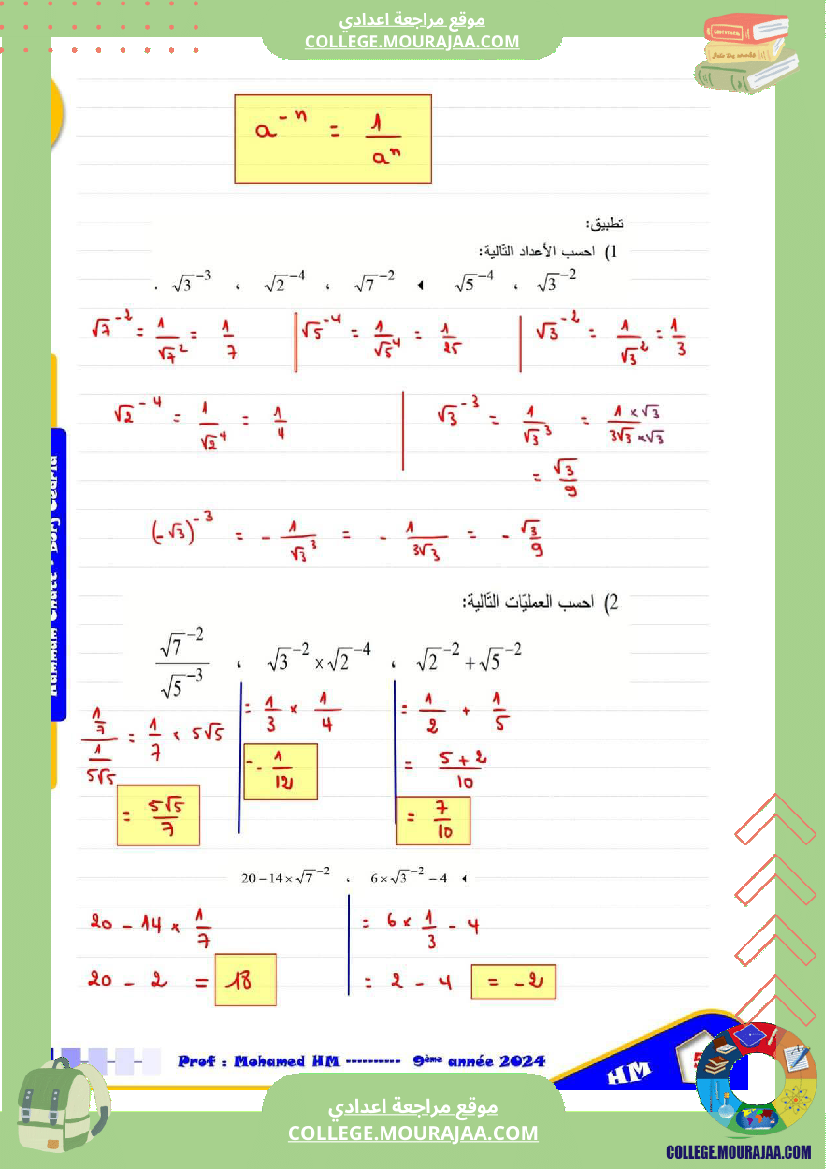 موقع مراجعة اعدادي
COLLEGE.MOURAJAA.COM
a⁻ⁿ = 1/aⁿ
تطبيق:
1) احسب الأعداد التّالية:
√3⁻² ، √5⁻⁴ ، √7⁻² ، √2⁻⁴ ، √3⁻³ .
√7⁻² = 1/√7² = 1/7 | √5⁻⁴ = 1/√5⁴ = 1/25 | √3⁻² = 1/√3² = 1/3
√2⁻⁴ = 1/√2⁴ = 1/4 | √3⁻³ = 1/√3³ = 1×√3/3√3×√3
= √3/9
(-√3)⁻³ = - 1/√3³ = - 1/3√3 = - √3/9
2) احسب العمليّات التّالية:
√2⁻² + √5⁻² ، √3⁻² × √2⁻⁴ ، √7⁻²/√5⁻³
(1/7)/(1/5√5) = 1/7 × 5√5 | = 1/3 × 1/4 | = 1/2 + 1/5
= 5√5/7 | = 1/12 | = 5+2/10
= 7/10
6×√3⁻² − 4 ، 20−14×√7⁻²
20 - 14 × 1/7 | = 6 × 1/3 - 4
20 - 2 = 18 | = 2 - 4 = -2
Prof : Mohamed HM ---------- 9ème année 2024
HM
موقع مراجعة اعدادي
COLLEGE.MOURAJAA.COM
COLLEGE.MOURAJAA.COM